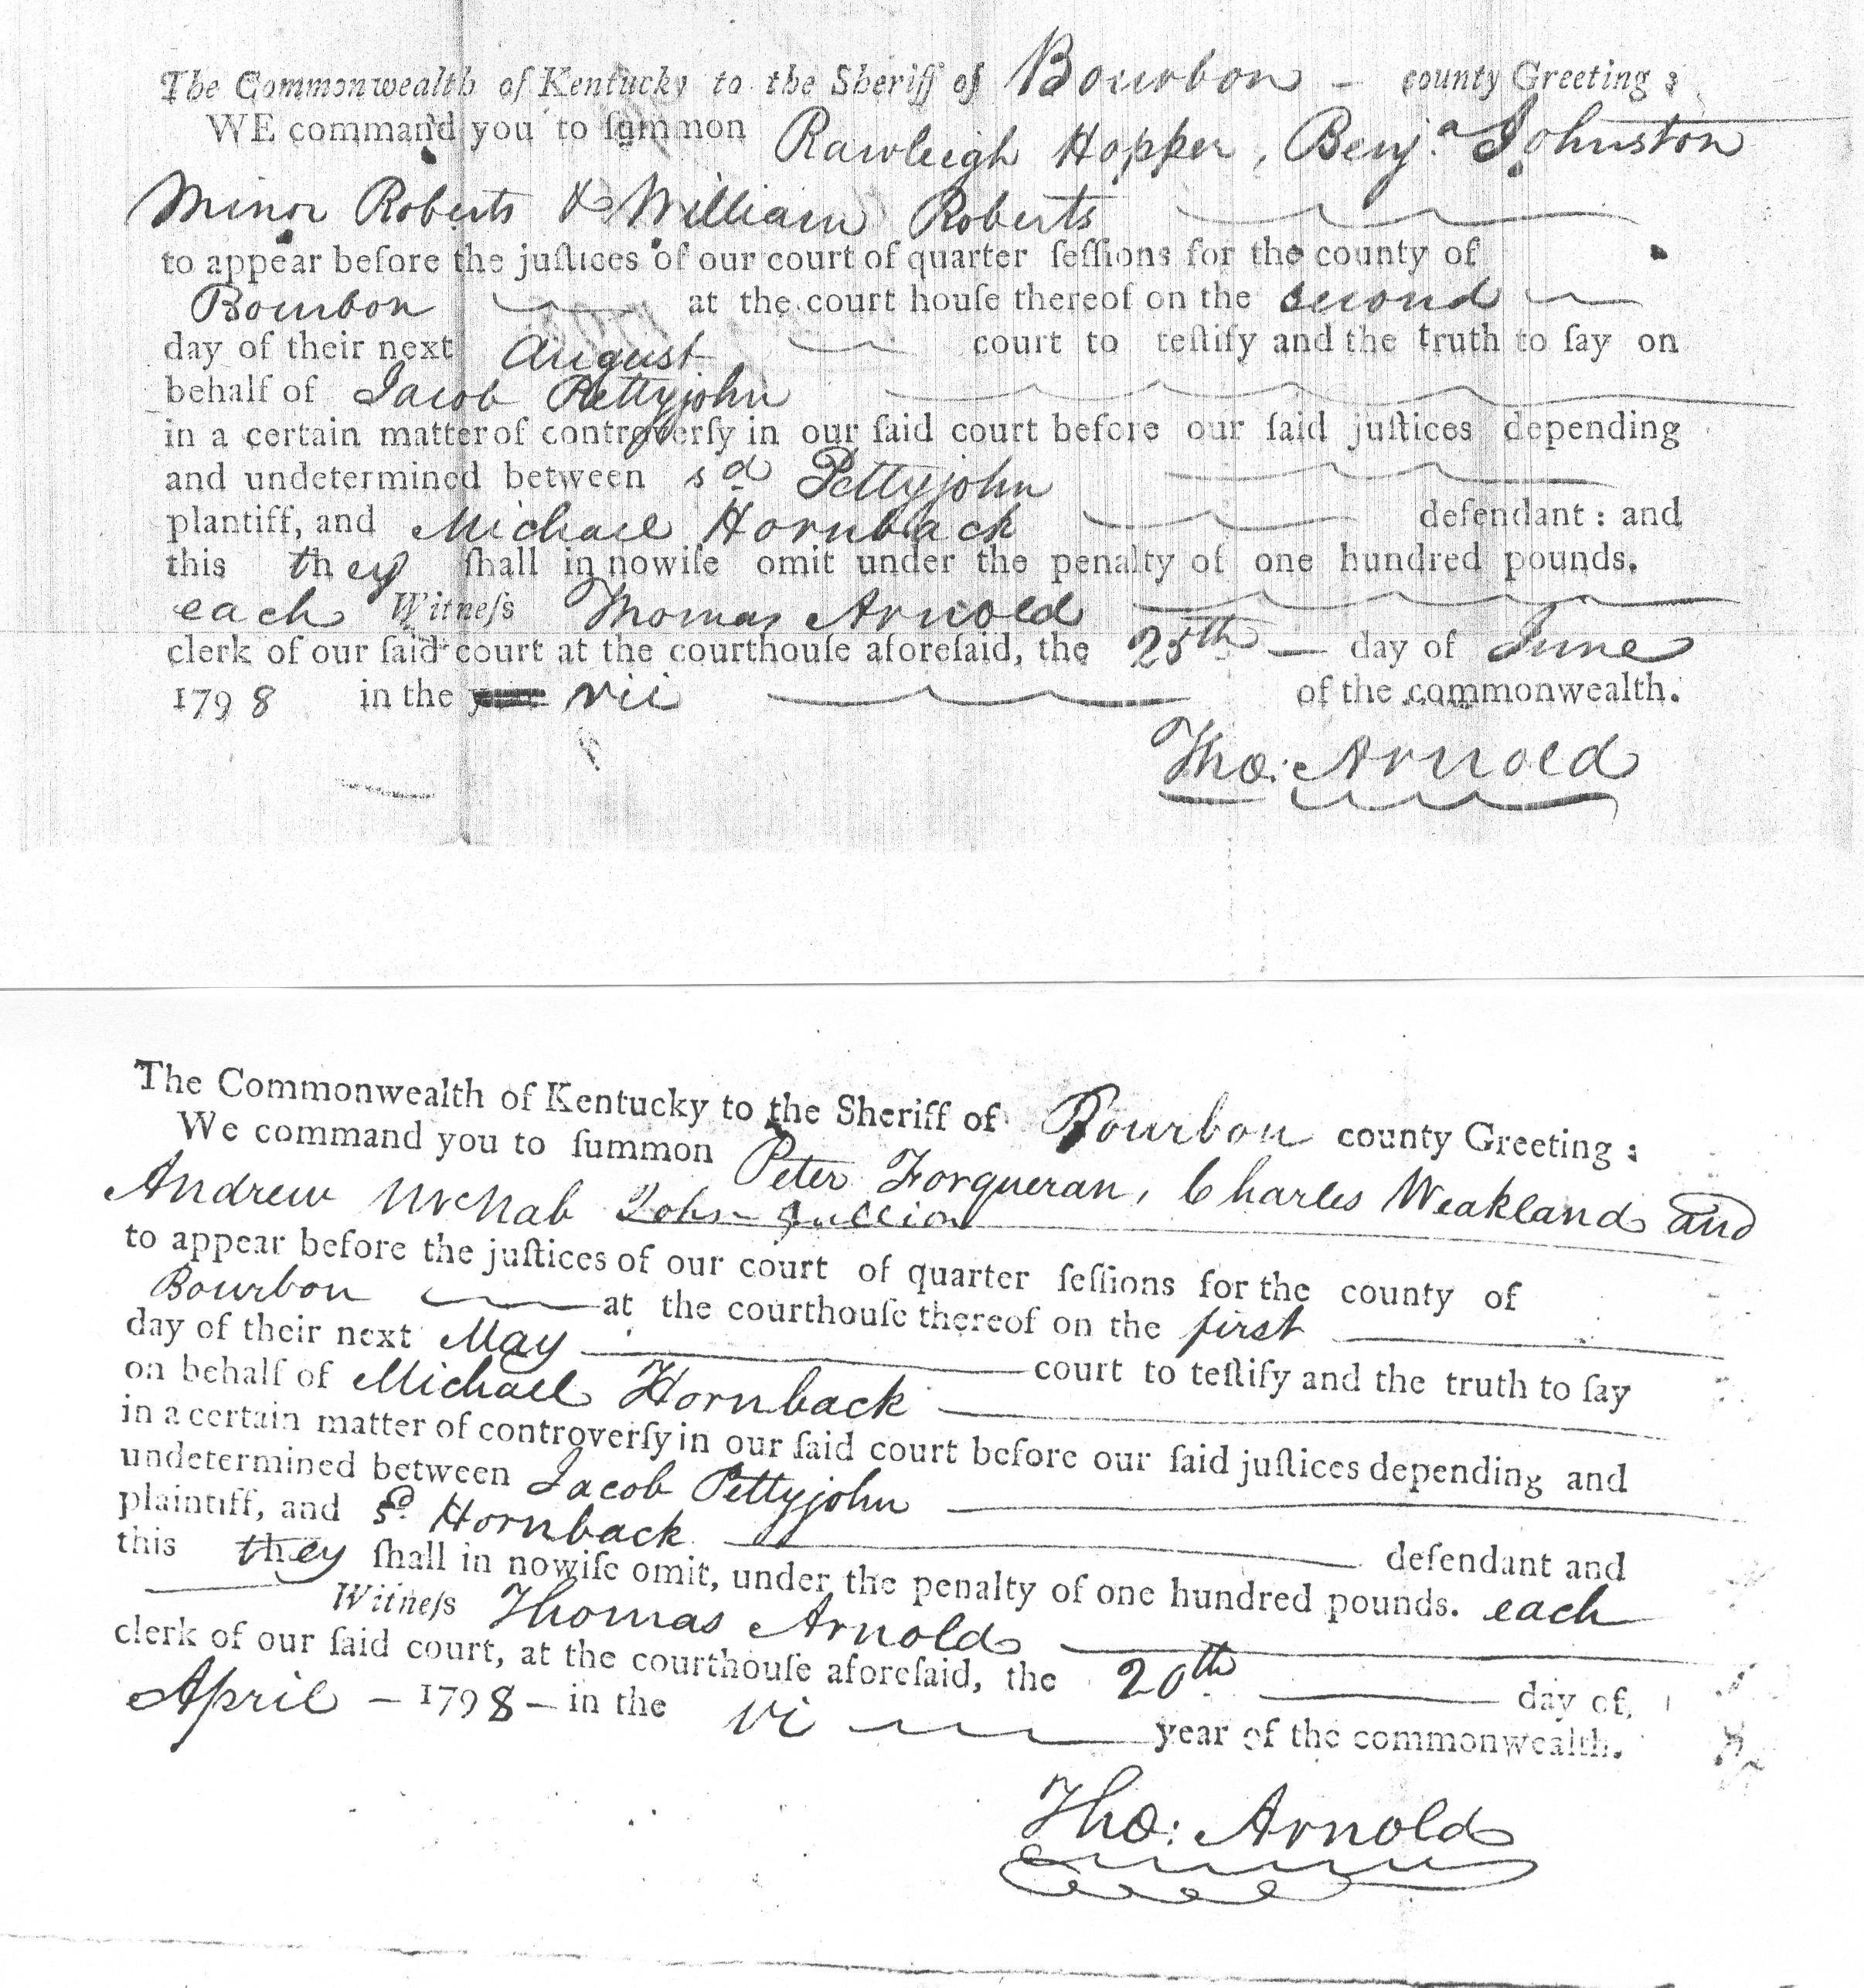 The Commonwealth of Kentucky to the Sheriff of Bourbon – county Greeting :
WE command you to ſummon Rawleigh Hopper, Benj.ª Johnston
Minor Roberts & William Roberts
to appear before the juſtices of our court of quarter ſeſſions for the county of
Bourbon at the court houſe thereof on the second
day of their next August court to teſtify and the truth to ſay on
behalf of Jacob Pettyjohn
in a certain matter of controverſy in our ſaid court before our ſaid juſtices depending
and undetermined between sd Pettyjohn
plantiff, and Michael Hornback defendant : and
this they ſhall in nowiſe omit under the penalty of one hundred pounds.
each Witneſs Thomas Arnold
clerk of our ſaid court at the courthouſe aforeſaid, the 25th — day of June
1798 in the vii of the commonwealth.
Tho: Arnold
The Commonwealth of Kentucky to the Sheriff of Bourbon county Greeting :
We command you to ſummon Peter Forqueran, Charles Weakland and
Andrew McNab John
to appear before the juſtices of our court of quarter ſeſſions for the county of
Bourbon at the courthouſe thereof on the first
day of their next May court to teſtify and the truth to ſay
on behalf of Michael Hornback
in a certain matter of controverſy in our ſaid court before our ſaid juſtices depending and
undetermined between Jacob Pettyjohn
plaintiff, and sd Hornback defendant and
this they ſhall in nowiſe omit, under the penalty of one hundred pounds. each
Witneſs Thomas Arnold
clerk of our ſaid court, at the courthouſe aforeſaid, the 20th day of
April – 1798 – in the vi year of the commonwealth.
Tho: Arnold